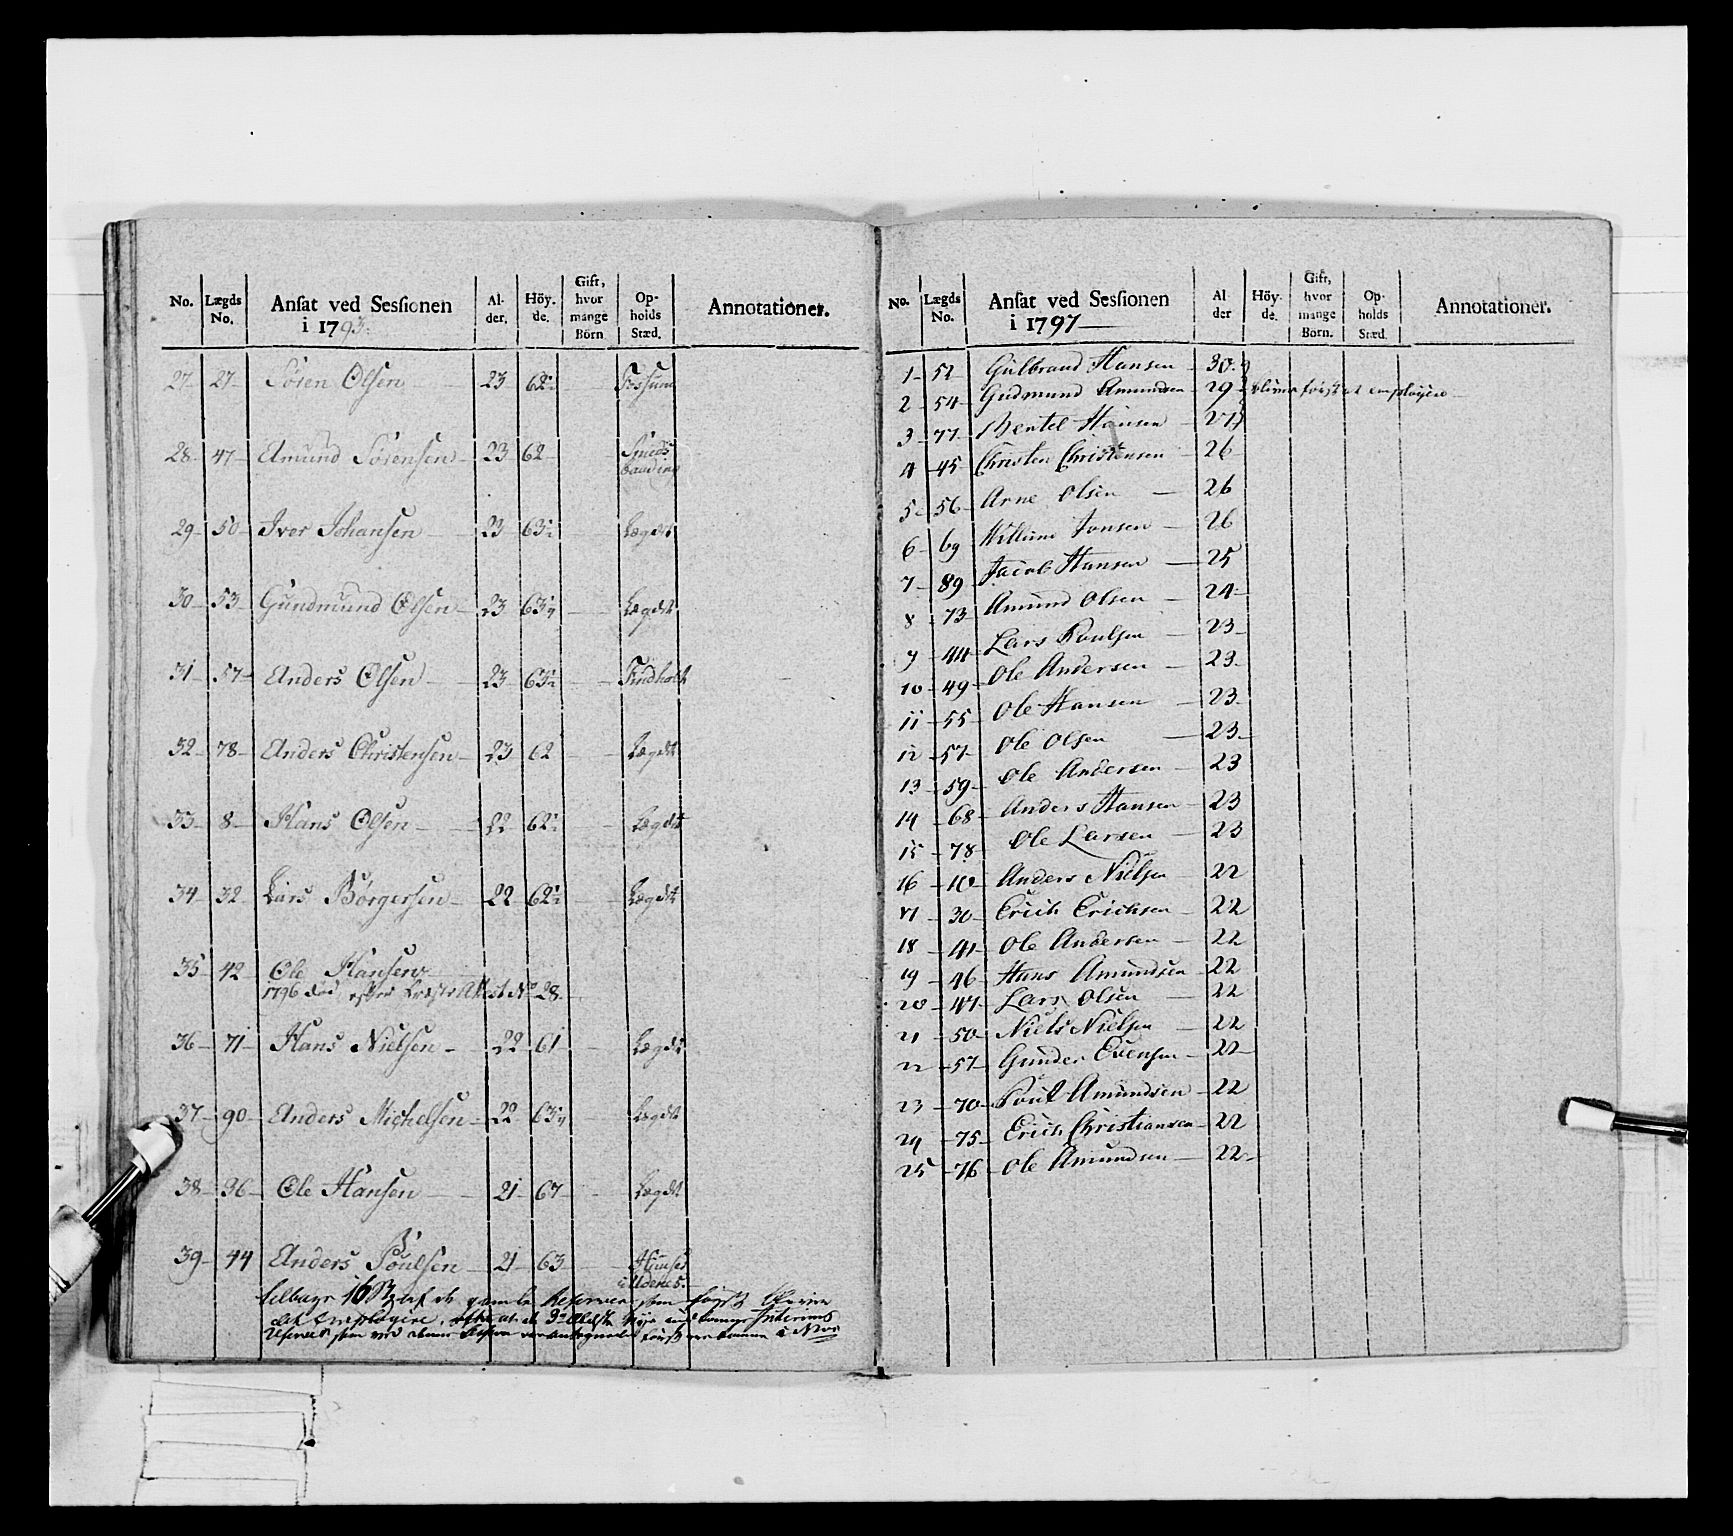 No. Lægds No. Ansat ved Sessionen i 1793. Al- der. Höy. de. Gift, hvor mange Börn Op- holds Stæd. Annotationer.
27 27 Sören Olsen 23 62½ Fossum
28 47 Amund Sörensen 23 62
29 50 Iver Johansen 23 63½ Lægdet
30 53 Gundmund Olsen 23 63¼ Lægdet
31 57 Anders Olsen 23 63½ Findholt
32 78 Anders Christensen 23 62 Lægdet
33 8 Hans Olsen 22 62½ Lægdet
34 32 Lars Börgersen 22 62½ Lægdet
35 42 Ole Hansen
1796 död, efter No 28
36 71 Hans Nielsen 22 61 Lægdet
37 90 Anders Michelsen 22 63¼ Lægdet
38 96 Ole Hansen 21 67 Lægdet
39 44 Anders Poulsen 21 63
16 af de gamle Reserver som först
det Employere
No. Lægds No. Ansat ved Sessionen i 1797 Al der Höy- de. Gift, hvor mange Börn. Op- holds Stæd. Annotationer.
1 52 Gulbrand Hansen 30
2 54 Gudmund Amundsen 29 bliver först at employere
3 77 Bentel Hansen 27
4 45 Christen Christensen 26
5 56 Arne Olsen 26
6 69 Willum Jonsen 26
7 89 Jacob Hansen 25
8 73 Amund Olsen 24
9 44 Lars Poulsen 23
10 49 Ole Andersen 23
11 55 Ole Hansen 23
12 57 Ole Olsen 23
13 59 Ole Andersen 23
14 68 Anders Hansen 23
15 78 Ole Larsen 23
16 10 Anders Nielsen 22
17 30 Erich Erichsen 22
18 41 Ole Andersen 22
19 46 Hans Amundsen 22
20 47 Lars Olsen 22
21 50 Niels Nielsen 22
22 57 Gunder Evensen 22
23 70 Poul Amundsen 22
24 75 Erich Christiansen 22
25 76 Ole Amundsen 22